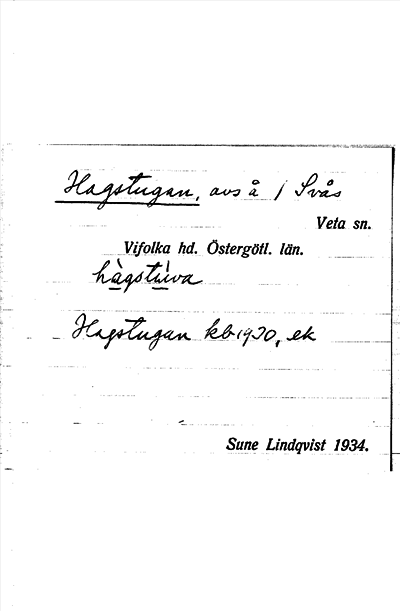 Hagstugan, avs å / Svås
Veta sn.
Vifolka hd. Östergötl. län.
hàgstùva
Hagstugan kb 1930, ek
Sune Lindqvist 1934.